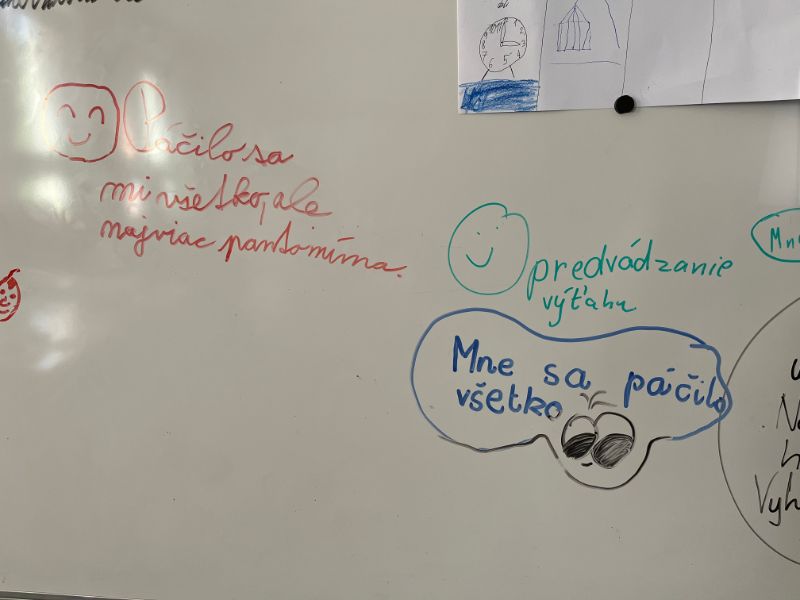 Páčilo sa
mi všetko, ale
najviac pantomíma.
predvádzanie
výťahu
Mne sa páčilo
všetko